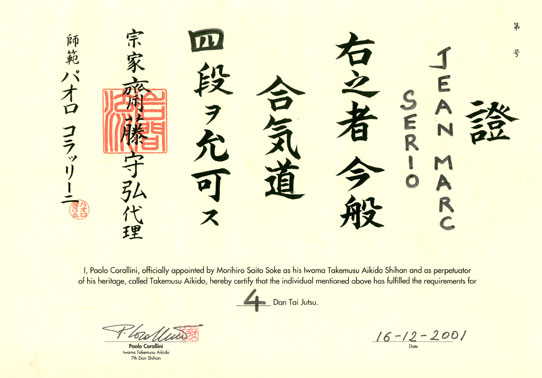 第 号
證
JEAN MARC
SERIO
右之者今般
合気道
四段ヲ允可ス
宗家 齊藤守弘代理
師範 パオロ コラッリーニ
I, Paolo Corallini, officially appointed by Morihiro Saito Soke as his Iwama Takemusu Aikido Shihan and as perpetuator
of his heritage, called Takemusu Aikido, hereby certify that the individual mentioned above has fulfilled the requirements for
4 Dan Tai Jutsu.
Paolo Corallini
Iwama Takemusu Aikido
7th Dan Shihan
16-12-2001
Date